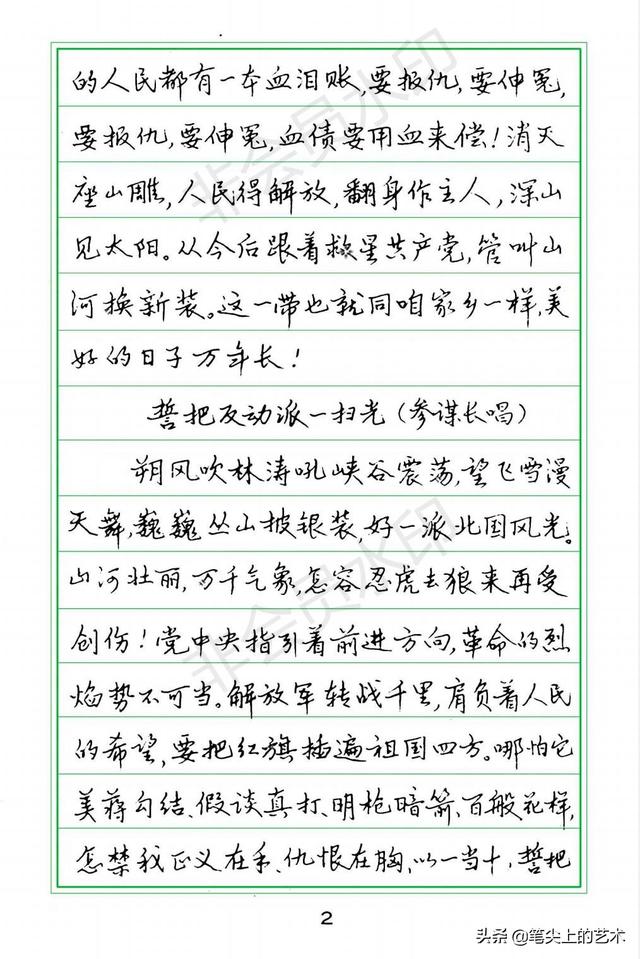 的人民都有一本血泪账,要报仇,要伸冤,
要报仇,要伸冤,血债要用血来偿!消灭
座山雕,人民得解放,翻身作主人,深山
见太阳。从今后跟着救星共产党,管叫山
河换新装。这一带也就同咱家乡一样,美
好的日子万年长!
誓把反动派一扫光(参谋长唱)
朔风吹林涛吼峡谷震荡,望飞雪漫
天舞,巍巍丛山披银装,好一派北国风光。
山河壮丽,万千气象,怎容忍虎去狼来再受
创伤!党中央指引着前进方向,革命的烈
焰势不可当。解放军转战千里,肩负着人民
的希望,要把红旗插遍祖国四方。哪怕它
美蒋勾结、假谈真打、明枪暗箭、百般花样,
怎禁我正义在手、仇恨在胸、以一当十,誓把
2
非会员水印
非会员水印
头条@笔尖上的艺术